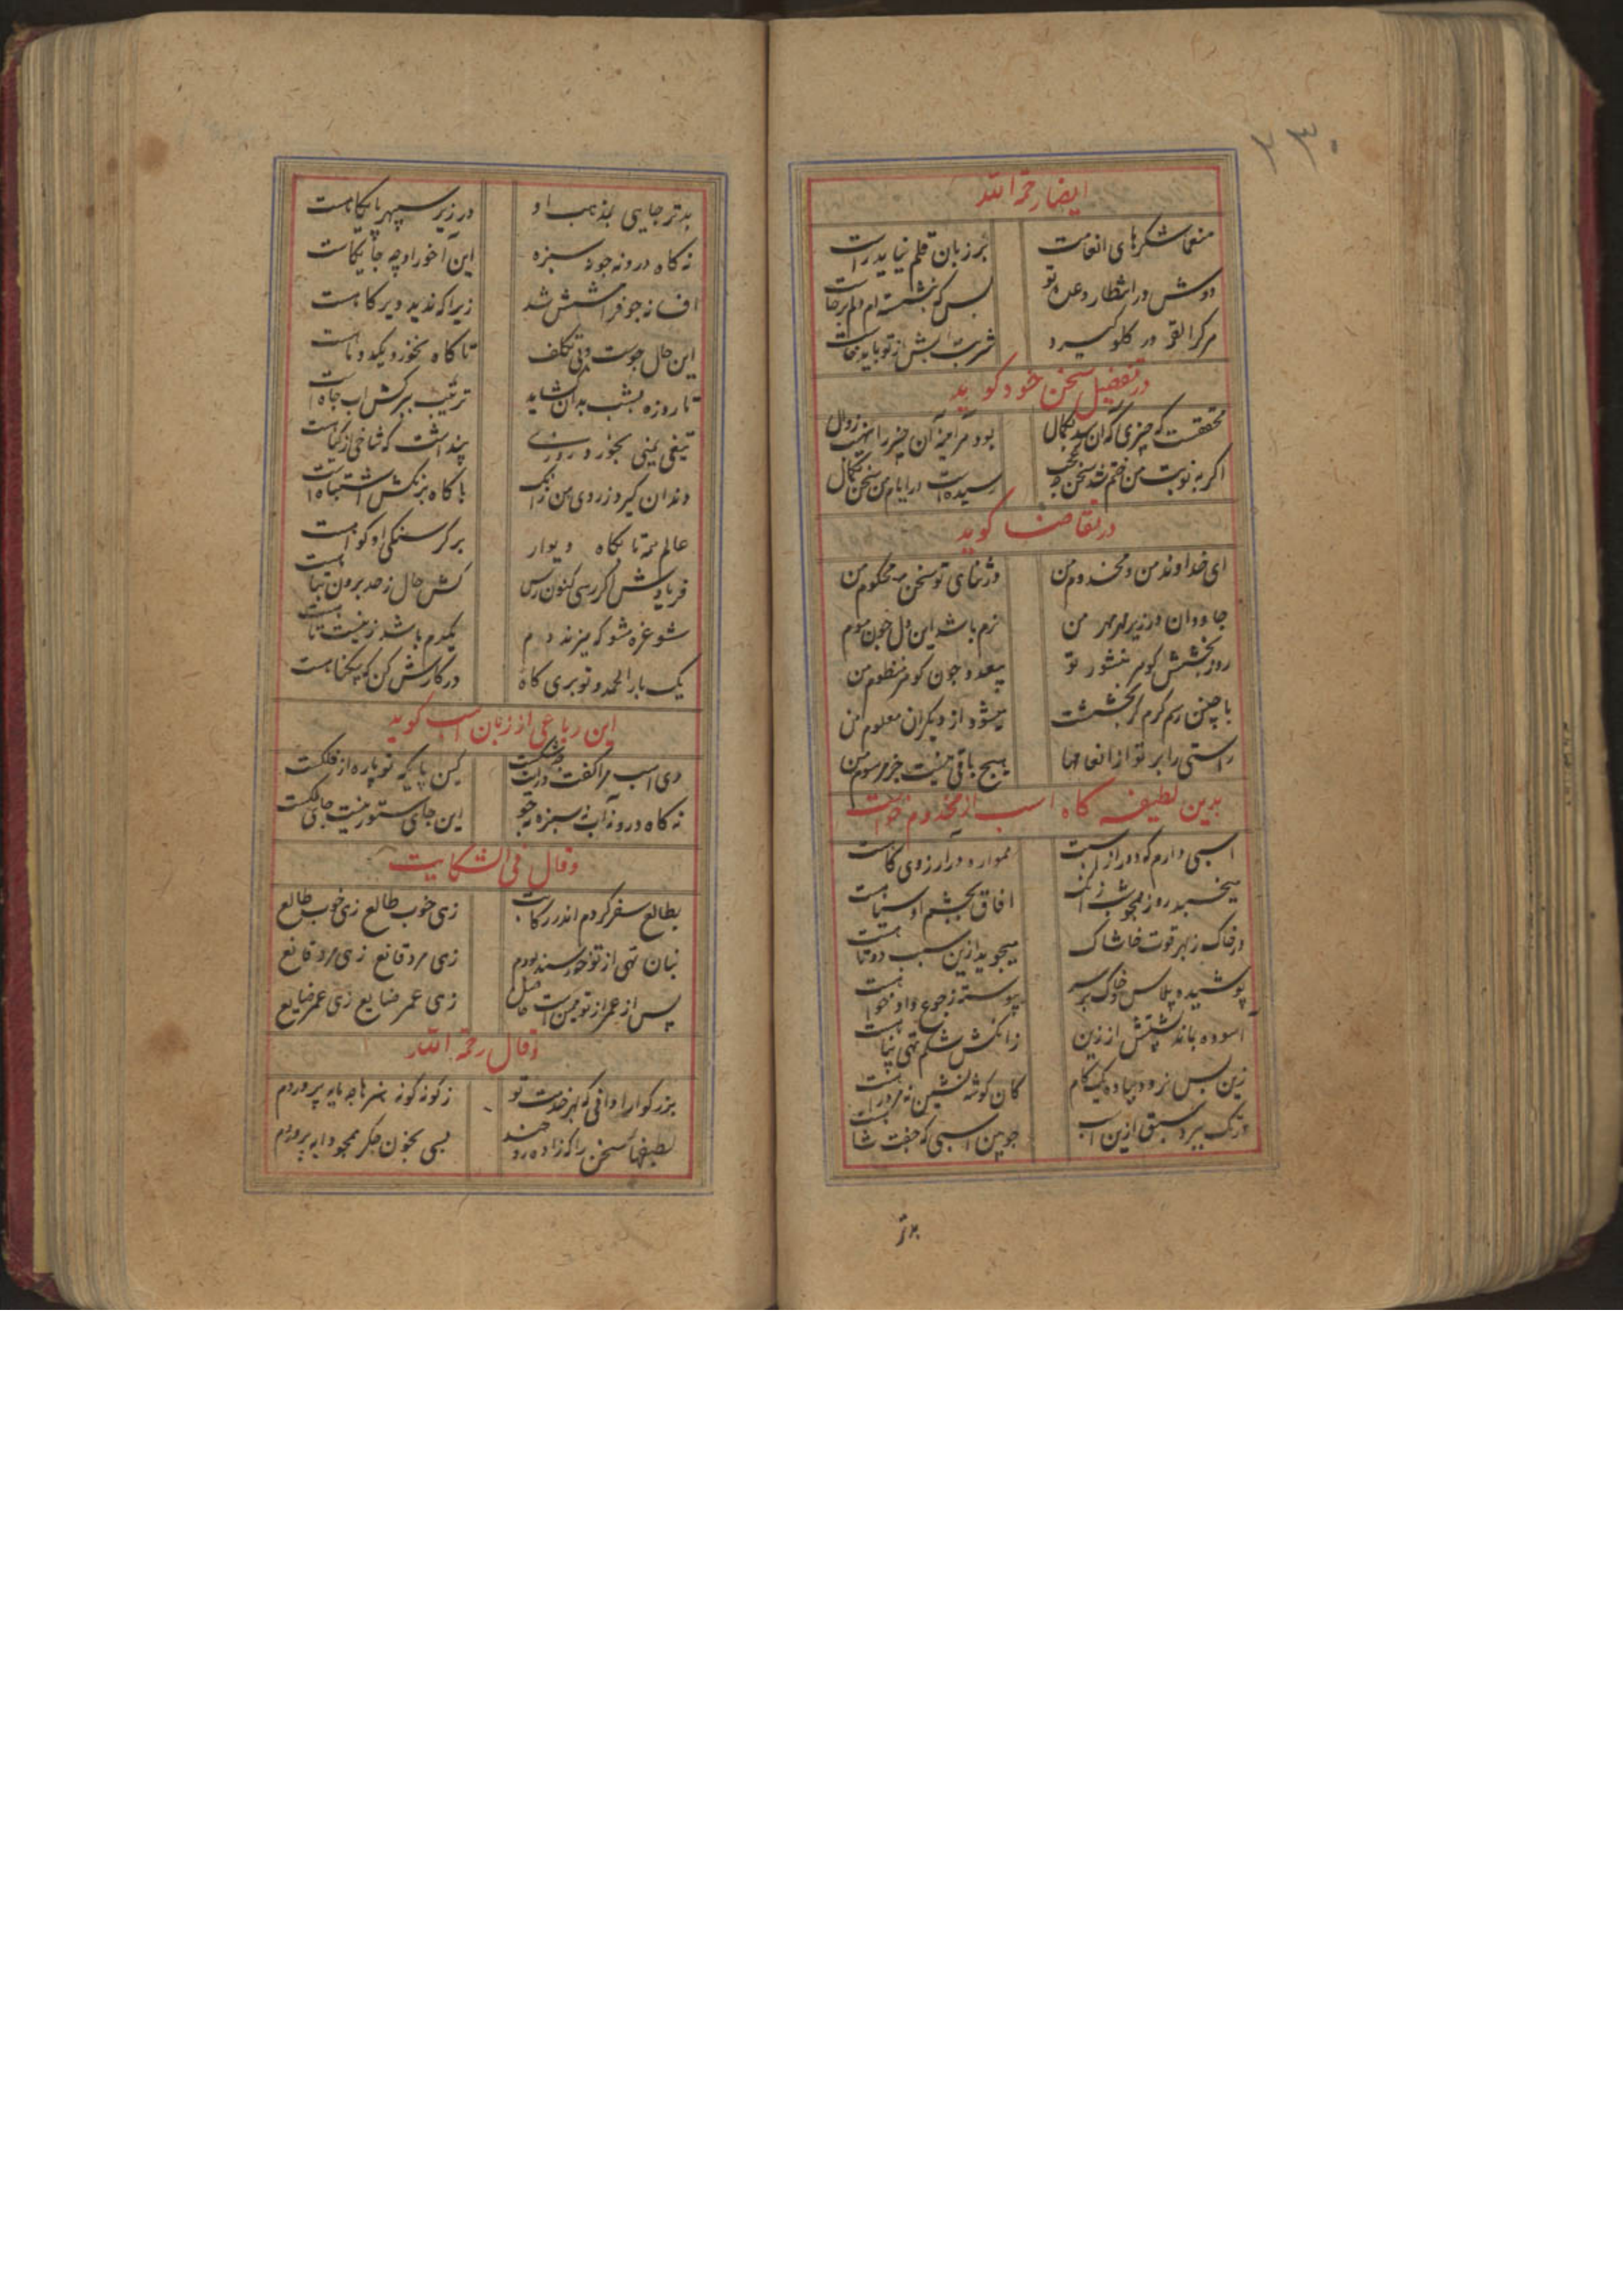 ۲۳۰
ایضا رحمة الله
منعما شکرهای انعامت
بر زبان قلم نیاید راست
دوش در انتظار وعده تو
بس که بنشسته ام دلم برخاست
هر کرا لقمه در کلو کیرد
شربت آبش از تو باید خواست
در تفضیل سخن خود کوید
محققست که چیزی که آن رسد بکمال
بود هر آینه آن چیز را نهیب زوال
اکر به نوبت من ختم شد سخن چه عجب
رسیده است در ایام من سخن بکمال
در تقاضا کوید
ای خداوند من و مخدوم من
در ثنای تو سخن محکوم من
جاودان در زیر مهر مهر من
نرم باشد این دل چون موم
روز بخشش کوهر منثور تو
بیعدد چون کوهر منظوم من
با چنین رسم کرم کز بخششت
میشود از دیکران معلوم من
راستی را بر تو از انعامها
هیچ باقی نیست جز مرسوم من
بدین لطیفه کاه اسب از مخدوم خواست
اسبی دارم که دور از
همواره در آرزوی کاهست
میخسبد روز
آفاق بچشم او سیاهست
در خاک ز بهر قوت خاشاک
میجوید ازین سبب دوتاهست
پوشیده پلاس و خاک بر سر
پیوسته ز جوع داد خواهست
آسوده نماند پشتش از زین
زانکش شکم تهی پناهست
زین پس نرود پیاده یک کام
کان کوشه نشین نه مرد راهست
در تک ببرد سبق ازین اسب
چوبین اسبی که جفت شاهست
بدتر
بدتر جایی بمذهب او
در زیر سپهر پایکاهست
نه کاه درو نه جو نه سبزه
این آخور او چه جایکاهست
افسانه جو فرامشش شد
زیرا که ندید دیر کاهست
این حال جوست و بی تکلف
تا کاه نخورد یکدو ماهست
تا روزه بشب بدان کشاید
ترتیب برکش آب چاه است
تیغی یمنی بخورد روزی
پنداشت که شاخی از کیاهست
دندان کیرد ز روی من زانک
با کاه برنکش اشتباه است
عالم همه تا بکاه دیوار
بر کرسنکی او کواهست
فریادش اکر رسی کنون رس
کش حال ز حد برون تباهست
مشو غره مشو که میزند دم
یکدم باشد ز نیست تا هست
یک بار الحمد و توبری کاه
در کارش کن که بیکناهست
این رباعی از زبان اسب کوید
دی اسب مرا کفت
کین پایکه تو پاره از فلکست
نه کاه درو نه آب نه سبزه نه جو
این جای ستور نیست جای ملکست
وقال فی الشکایت
بطالع سفر کردم اندر رکابت
زهی خوب طالع زهی خوب طالع
بنان تهی از تو خرسند بودم
زهی مرد قانع زهی مرد قانع
پس از عمر از تو همین است حاصل
زهی عمر ضایع زهی عمر ضایع
وقال رحمة الله
بزرکوارا دانی که بهر خدمت تو
ز کونه کونه هنرها چه مایه پروردم
لطیفهای سخن را که زاده
بسی بخون جکر همچو دایه پروردم